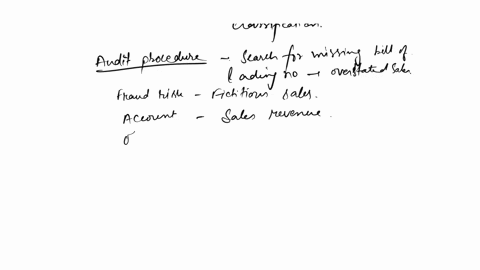 classification.
Audit procedure - Search for missing bill of
lading no → overstated sales
Fraud risk - Fictitious sales.
Account - Sales revenue.